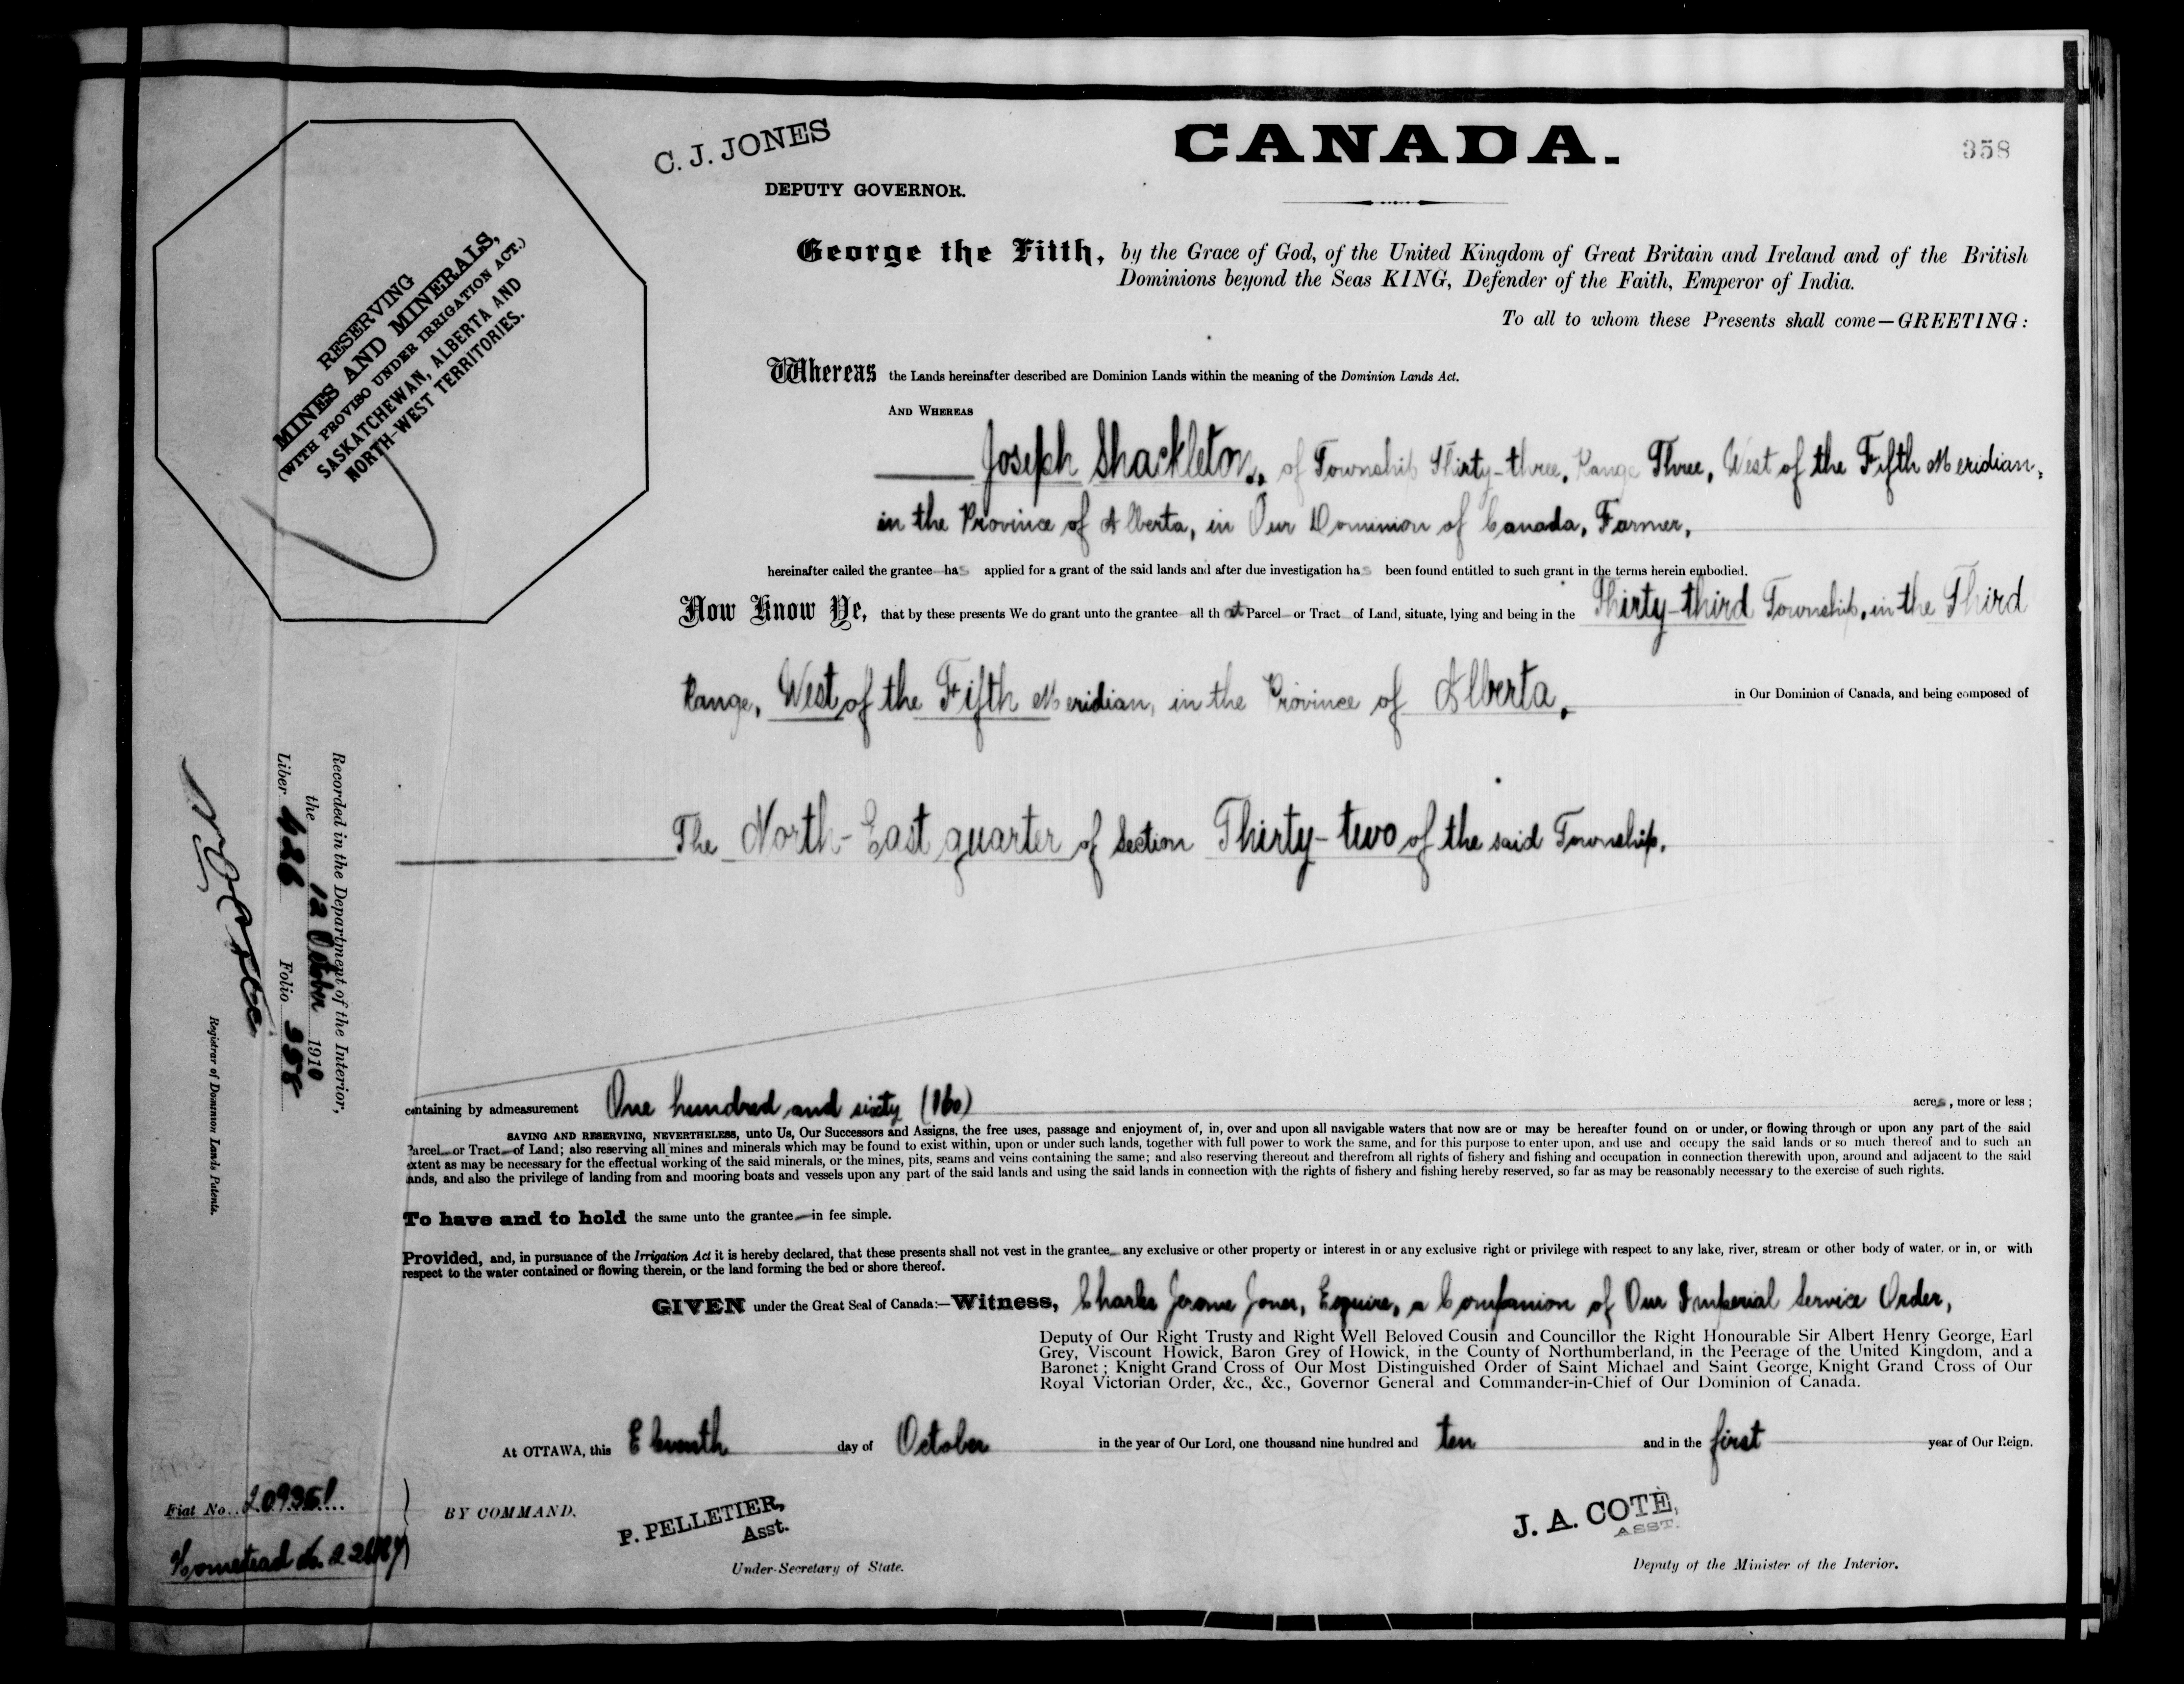 C. J. JONES
CANADA.
358
DEPUTY GOVERNOR.
RESERVING
MINES AND MINERALS,
(WITH PROVISO UNDER IRRIGATION ACT.)
SASKATCHEWAN, ALBERTA AND
NORTH-WEST TERRITORIES.
George the Fifth, by the Grace of God, of the United Kingdom of Great Britain and Ireland and of the British
Dominions beyond the Seas KING, Defender of the Faith, Emperor of India.
To all to whom these Presents shall come—GREETING:
Whereas the Lands hereinafter described are Dominion Lands within the meaning of the Dominion Lands Act.
AND WHEREAS
Joseph Shackleton, of Township Thirty-three, Range Three, West of the Fifth Meridian,
in the Province of Alberta, in Our Dominion of Canada, Farmer,
hereinafter called the grantee has applied for a grant of the said lands and after due investigation has been found entitled to such grant in the terms herein embodied.
Now Know Ye, that by these presents We do grant unto the grantee all that Parcel or Tract of Land, situate, lying and being in the Thirty-third Township, in the Third
Range, West of the Fifth Meridian, in the Province of Alberta, in Our Dominion of Canada, and being composed of
The North-East quarter of Section Thirty-two of the said Township.
Recorded in the Department of the Interior,
the 12 October 1910
Liber Folio 358
Registrar of Dominion Lands Patents.
containing by admeasurement One hundred and sixty (160) acres, more or less;
SAVING AND RESERVING, NEVERTHELESS, unto Us, Our Successors and Assigns, the free uses, passage and enjoyment of, in, over and upon all navigable waters that now are or may be hereafter found on or under, or flowing through or upon any part of the said
Parcel or Tract of Land; also reserving all mines and minerals which may be found to exist within, upon or under such lands, together with full power to work the same, and for this purpose to enter upon, and use and occupy the said lands or so much thereof and to such an
extent as may be necessary for the effectual working of the said minerals, or the mines, pits, seams and veins containing the same; and also reserving thereout and therefrom all rights of fishery and fishing and occupation in connection therewith upon, around and adjacent to the said
lands, and also the privilege of landing from and mooring boats and vessels upon any part of the said lands and using the said lands in connection with the rights of fishery and fishing hereby reserved, so far as may be reasonably necessary to the exercise of such rights.
To have and to hold the same unto the grantee in fee simple.
Provided, and, in pursuance of the Irrigation Act it is hereby declared, that these presents shall not vest in the grantee any exclusive or other property or interest in or any exclusive right or privilege with respect to any lake, river, stream or other body of water, or in, or with
respect to the water contained or flowing therein, or the land forming the bed or shore thereof.
GIVEN under the Great Seal of Canada:—Witness, Charles Jerome Jones, Esquire, a Companion of Our Imperial Service Order,
Deputy of Our Right Trusty and Right Well Beloved Cousin and Councillor the Right Honourable Sir Albert Henry George, Earl
Grey, Viscount Howick, Baron Grey of Howick, in the County of Northumberland, in the Peerage of the United Kingdom, and a
Baronet; Knight Grand Cross of Our Most Distinguished Order of Saint Michael and Saint George, Knight Grand Cross of Our
Royal Victorian Order, &c., &c., Governor General and Commander-in-Chief of Our Dominion of Canada.
At OTTAWA, this Eleventh day of October in the year of Our Lord, one thousand nine hundred and ten and in the first year of Our Reign.
Fiat No.
Homestead No.
BY COMMAND,
P. PELLETIER,
Asst.
Under-Secretary of State.
J. A. COTÉ,
ASST.
Deputy of the Minister of the Interior.